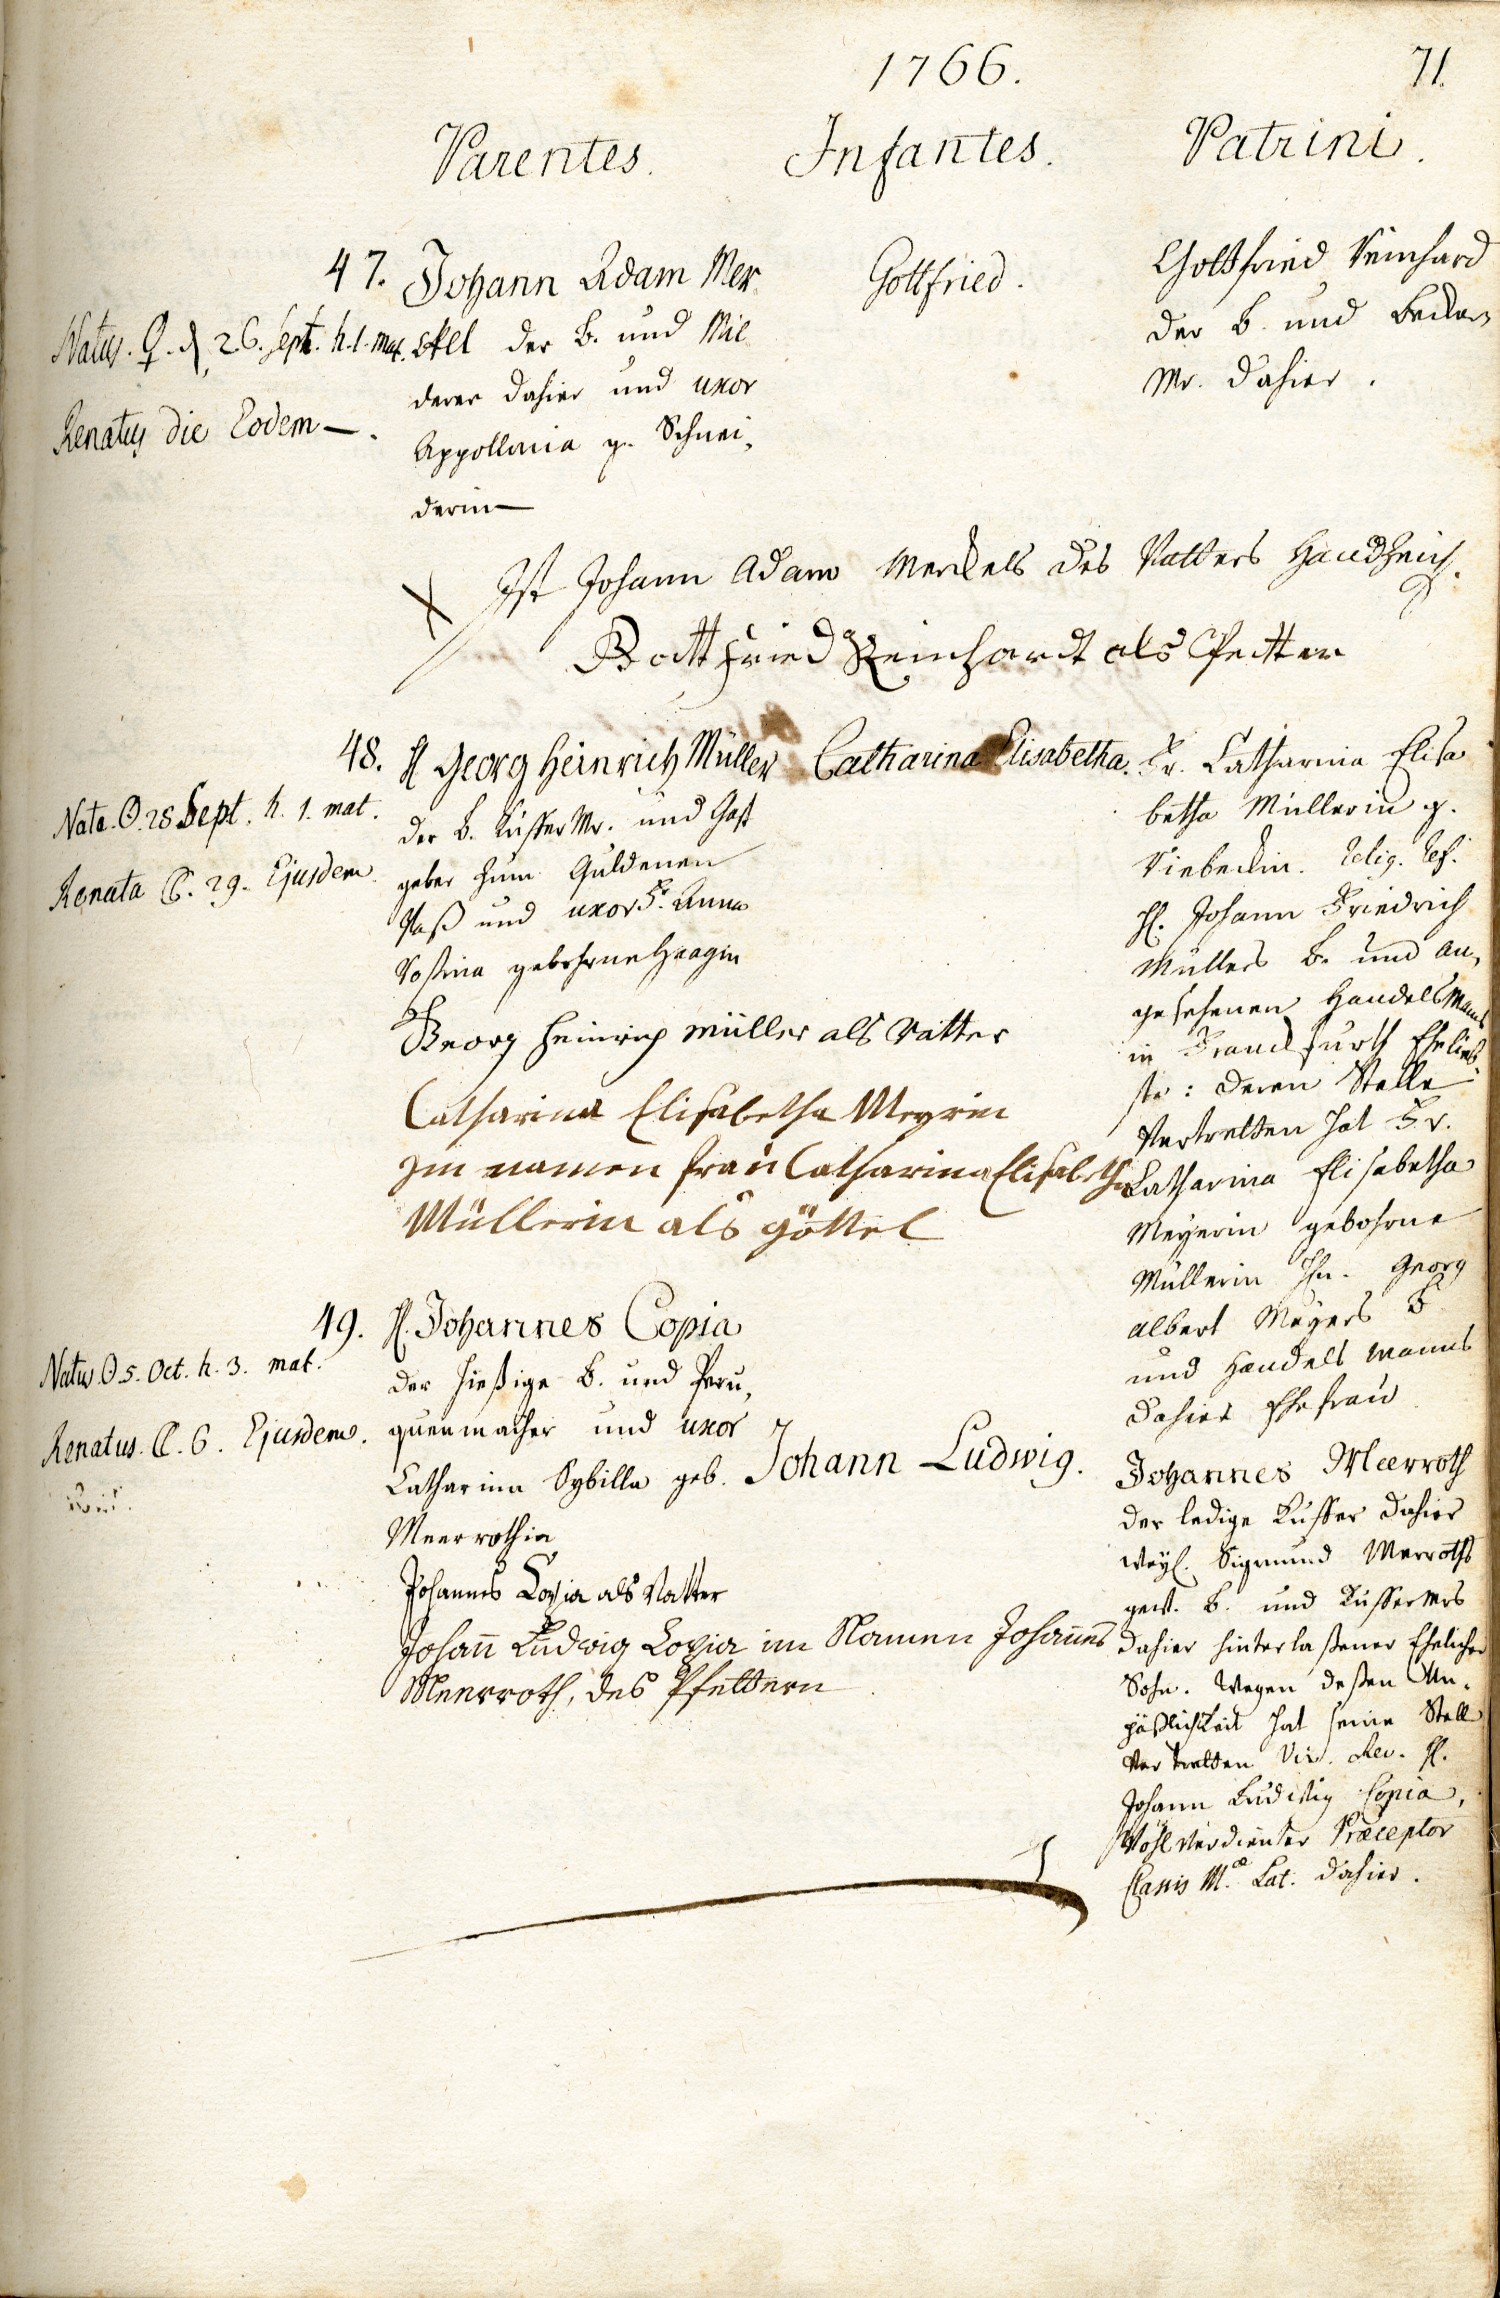 1766.
71.
Parentes.
Infantes.
Patrini.
47. Johann Adam Mer
ckel der B. und
derer dahier und uxor
Appollonia g. Schnei,
derin
Natus ♀. d. 26. Sept. h. 1. mat.
Renatus die Eodem
Gottfried.
Gottfried Reinhard
der B. und Becker
Mr. dahier.
X Ist Johann Adam Merckels des Vatters Handzeich.
Gottfried Reinhardt als Petter
48. H Georg Heinrich Müller
der B. Küffer Mr. und Gast
geber zum Guldenen
Faß und uxor Fr. Anna
Rosina gebohrne Haagin
Nata ☉. 28 Sept. h. 1. mat.
Renata ☾. 29. Ejusdem
Catharina Elisabetha.
Fr. Catharina Elisa
betha Müllerin g.
Viebeckin. Relig. Ref.
H. Johann Friedrich
Müllers B. und an,
gesehenen Handels Manns
in Franckfurth Ehelieb
ste: deren Stelle
Vertretten hat Fr.
Catharina Elisabetha
Meyerin gebohrne
Müllerin Hn. Georg
Albert Meyers B
und Handels Manns
dahier Ehefrau
Georg Heinrich Müller als Vatter
Catharina Elisabetha Meyrin
im namen frau Catharina Elisabetha
Müllerin als göttel
49. H. Johannes Copia
der hießige B. und Peru,
quenmacher und uxor
Catharina Sybilla geb.
Meerrothin
Natus ☉ 5. Oct. h. 3. mat.
Renatus. ☾. 6. Ejusdem.
Johann Ludwig.
Johannes Meerroth
der ledige Küffer dahier
Weyl. Sigmund Merroths
gew. B. und Küffermrs
dahier hinterlaßener Ehelicher
Sohn. Wegen deßen Un,
päßlichkeit hat seine Stell
Vertretten Vir. Rev. H.
Johann Ludwig Copia,
Wohlverdienter Præceptor
Classis M.æ Lat. dahier.
Johannes Copia als Vatter
Johann Ludwig Copia im Namen Johannes
Meerroth, des Pfettern